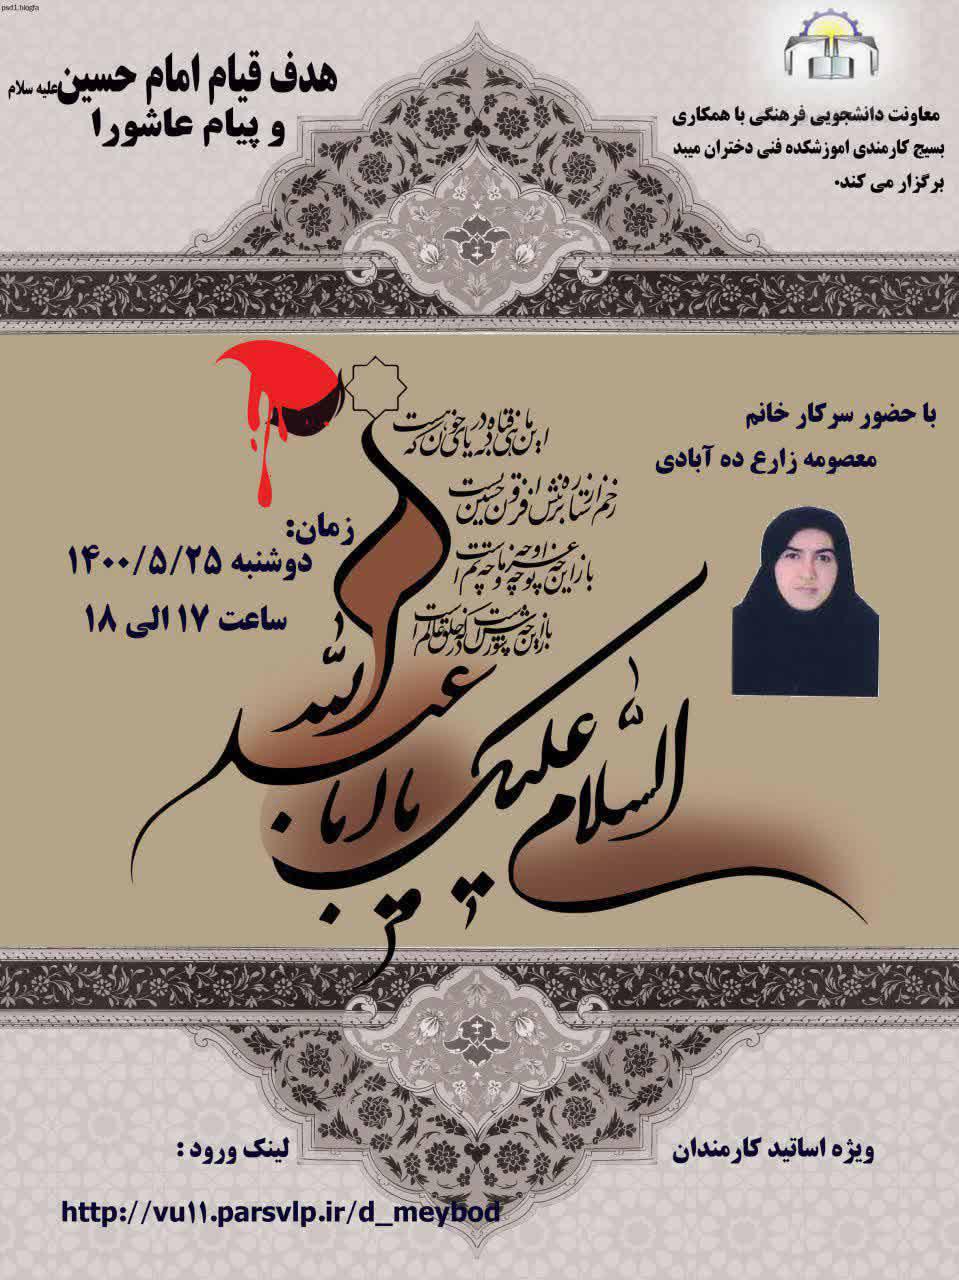 psd1.blogfa
معاونت دانشجویی فرهنگی با همکاری
بسیج کارمندی اموزشکده فنی دختران میبد
برگزار می کند.
هدف قیام امام حسین علیه سلام
و پیام عاشورا
با حضور سرکار خانم
معصومه زارع ده آبادی
زمان:
دوشنبه ۱۴۰۰/۵/۲۵
ساعت ۱۷ الی ۱۸
این ماهی فتاده به دریای خون که هست
زخم از ستاره بر تنش افزون حسین تست
باز این چه نوحه و چه عزا و چه ماتم است
باز این چه شورش است که در خلق عالم است
السلام علیک یا ابا عبد الله
ویژه اساتید کارمندان
لینک ورود :
http://vu11.parsvlp.ir/d_meybod